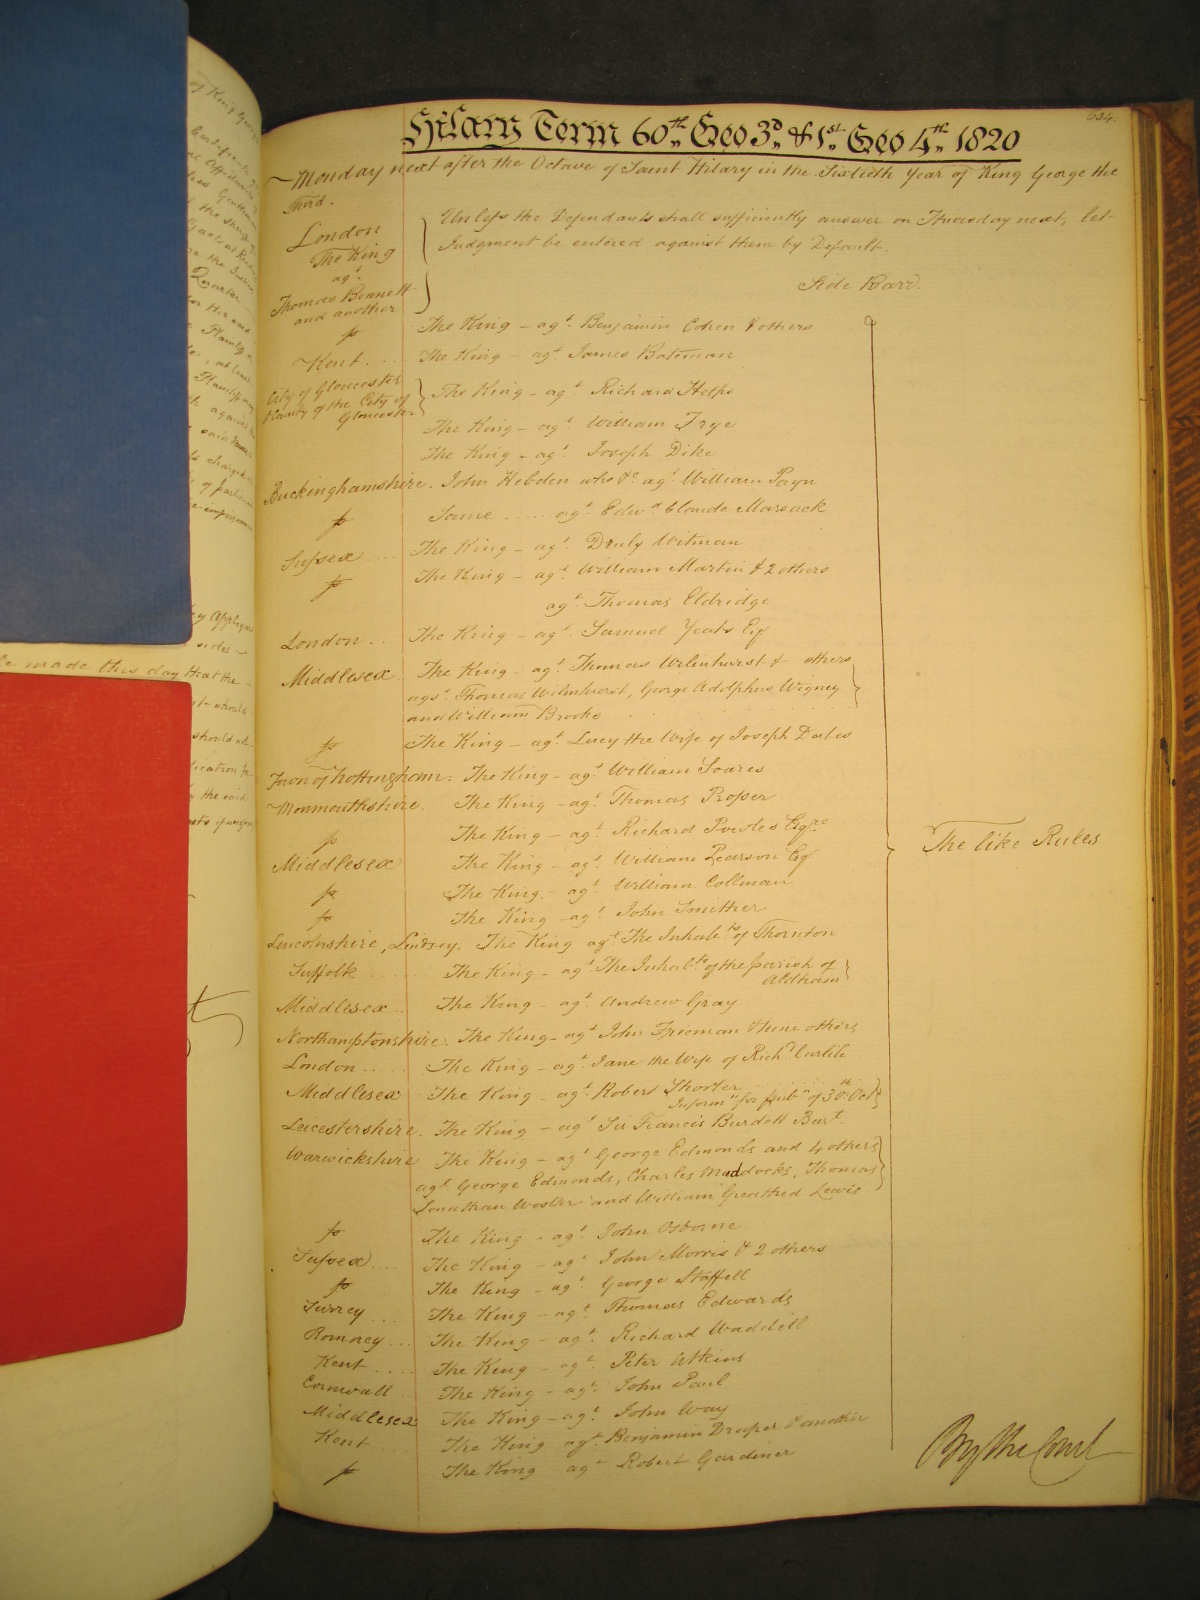 634.
Hilary Term 60th Geo 3d & 1st Geo 4th 1820
Monday next after the Octave of Saint Hilary in the Sixtieth Year of King George the
Third.
London
The King
agt
Thomas Bennett
and another
Unless the Defendants shall sufficiently answer on Thursday next, let
Judgment be entered against them by Default.
Side Barr.
fs The King – agt Benjamin Cohen & others
Kent .... The King – agt James Bateman
City of Gloucester
County of the City of
Gloucester
The King – agt Richard Helps
The King – agt William Frye
The King – agt Joseph Dike
Buckinghamshire. John Hebden who &c agt William Payn
fs Same ..... agt Edwd Claude Marsack
Sussex .... The King – agt Druly Witman
fs The King – agt William Martin & 2 others
agt Thomas Eldridge
London ... The King – agt Samuel Yeats Esq
Middlesex The King – agt Thomas Wilmhurst & others
agst Thomas Wilmhurst, George Adolphus Wigney
and William Brooke
fs The King – agt Lucy the Wife of Joseph
Town of Nottingham. The King – agt William Soares
Monmouthshire. The King – agt Thomas Prosser
fs The King – agt Richard Powles Esqre
Middlesex The King – agt William Pearson Esq
fs The King – agt William Collman
fs The King – agt John Smither
Lincolnshire, Lindsey. The King agt The Inhabts of Thornton
Suffolk ...... The King – agt The Inhabts of the parish of
Aldham
Middlesex .. The King – agt Andrew Gray
Northamptonshire. The King – agt John Freeman & nine others
London ..... The King – agt Jane the Wife of Richd Carlile
Middlesex The King – agt Robert Shorter
Informn for pubn of 30th Oct
Leicestershire. The King – agt Sir Francis Burdett Bart.
Warwickshire The King – agt George Edmonds and 4 others
agt George Edmonds, Charles Maddocks, Thomas
Jonathan Wooller and William Greathed Lewis
fs The King – agt John Osborne
Sussex .... The King – agt John Morris & 2 others
fs The King – agt George Staffell
Surrey .... The King – agt Thomas Edwards
Romney ... The King – agt Richard Waddell
Kent .... The King – agt Peter Atkins
Cornwall .. The King – agt John Paul
Middlesex The King – agt John Way
Kent .... The King agt Benjamin Draper & another
fs The King agt Robert Gardiner
The like Rules
By the Court
made this day that the